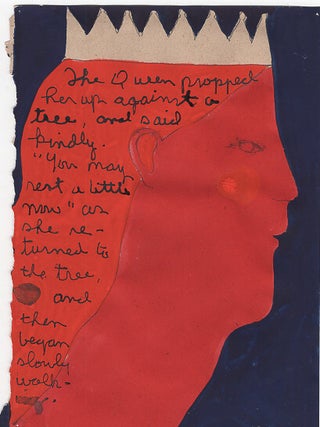 The Queen propped
her up against a
tree, and said
kindly.
"You may
rest a little
now" as
she re-
turned to
the tree,
and
then
began
slowly
walk-
ing.